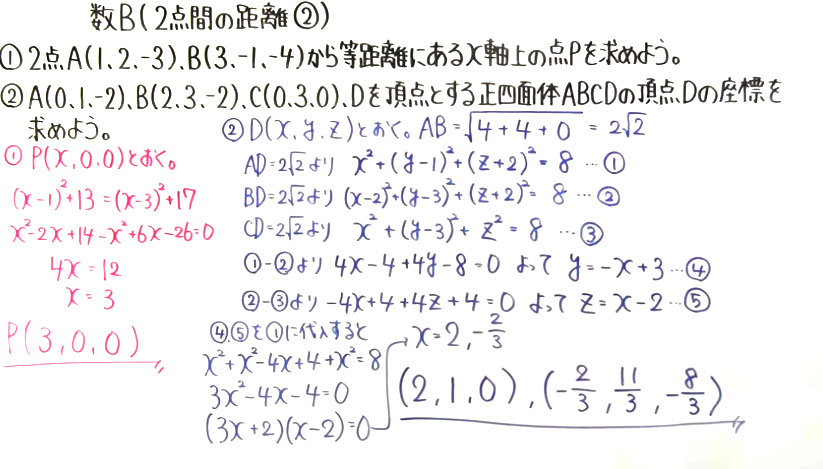 数B(2点間の距離②)
①2点A(1,2,-3)、B(3,-1,-4)から等距離にあるx軸上の点Pを求めよう。
②A(0,1,-2)、B(2,3,-2)、C(0,3,0)、Dを頂点とする正四面体ABCDの頂点Dの座標を
求めよう。
①P(x,0,0)とおく。
(x-1)²+13=(x-3)²+17
x²-2x+14-x²+6x-26=0
4x=12
x=3
P(3,0,0)
②D(x,y,z)とおく。AB=√4+4+0 = 2√2
AD=2√2より x²+(y-1)²+(z+2)²=8 …①
BD=2√2より (x-2)²+(y-3)²+(z+2)²=8 …②
CD=2√2より x²+(y-3)²+z²=8 …③
①-②より 4x-4+4y-8=0 よって y=-x+3 …④
②-③より -4x+4+4z+4=0 よって z=x-2 …⑤
④,⑤を①に代入すると
x²+x²-4x+4+x²=8
3x²-4x-4=0
(3x+2)(x-2)=0
x=2,-2/3
(2,1,0),(-2/3,11/3,-8/3)